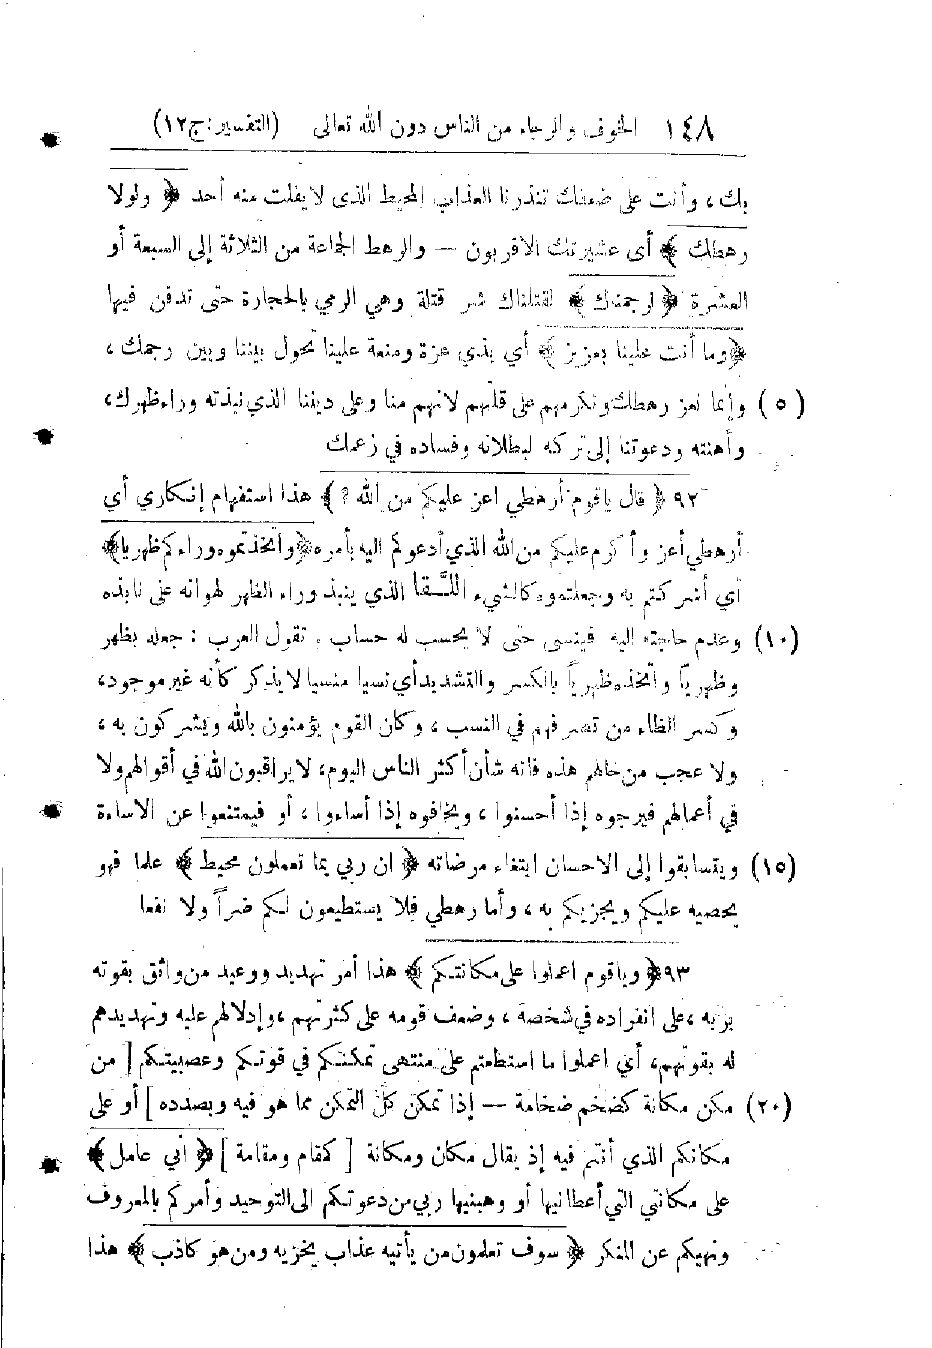 ١٤٨ الخوف والرجاء من الناس دون الله تعالى (التفسير: ج ١٢)
بك ، وأنت على ضعفك تنذرنا العذاب المحيط الذى لا يفلت منه أحد ﴿ ولولا
رهطك ﴾ أى عشيرتك الاقربون — والرهط الجماعة من الثلاثة إلى السبعة أو
العشرة ﴿ لرجمناك ﴾ لقتلناك شر قتلة وهي الرمي بالحجارة حتى تدفن فيها
﴿ وما أنت علينا بعزيز ﴾ أي بذي عزة ومنعة علينا تحول بيننا وبين رجمك ،
(٥) وإنما نعز رهطك ونكرمهم على قلتهم لانهم منا وعلى ديننا الذي نبذته وراء ظهرك ،
وأهنته ودعوتنا إلى تركه لبطلانه وفساده في زعمك
٩٢ ﴿ قال ياقوم أرهطي اعز عليكم من الله ؟ ﴾ هذا استفهام إنكاري أي
أرهطي أعز وأكرم عليكم من الله الذي أدعوكم اليه بأمره ﴿ واتخذتموه وراءكم ظهريا ﴾
أي أشركتم به وجعلتموه كالشيء اللَّقا الذي ينبذ وراء الظهر لهوانه على نابذه
(١٠) وعدم حاجته اليه فينسى حتى لا يحسب له حساب . تقول العرب : جعله بظهر
وظهريّا واتخذه ظهرياً بالكسر والتشديد أي نسيا منسيا لا يذكر كأنه غير موجود،
وكسر الظاء من تصرفهم في النسب ، وكان القوم يؤمنون بالله ويشركون به ،
ولا عجب من حالهم هذه فانه شأن أكثر الناس اليوم، لا يراقبون الله في أقوالهم ولا
في أعمالهم فيرجوه إذا أحسنوا ، ويخافوه إذا أساءوا ، أو فيمتنعوا عن الاساءة
(١٥) ويتسابقوا إلى الاحسان ابتغاء مرضاته ﴿ ان ربي بما تعملون محيط ﴾ علما فهو
يحصيه عليكم ويجزيكم به ، وأما رهطي فلا يستطيعون لكم ضراً ولا نفعا
٩٣ ﴿ وياقوم اعملوا على مكانتكم ﴾ هذا أمر تهديد ووعيد من واثق بقوته
بربه ، على انفراده في شخصه ، وضعف قومه على كثرتهم ، وإدلالهم عليه وتهديدهم
له بقوتهم، أي اعملوا ما استطعتم على منتهى تمكنكم في قوتكم وعصبيتكم [ من
(٢٠) مكن مكانة كضخم ضخامة — إذا تمكن كلَّ التمكن مما هو فيه وبصدده ] أو على
مكانكم الذي أنتم فيه إذ يقال مكان ومكانة [ كمقام ومقامة ] ﴿ اني عامل ﴾
على مكانتي التي أعطانيها أو وهبنيها ربي من دعوتكم الى التوحيد وأمركم بالمعروف
ونهيكم عن المنكر ﴿ سوف تعلمون من يأتيه عذاب يخزيه ومن هو كاذب ﴾ هذا